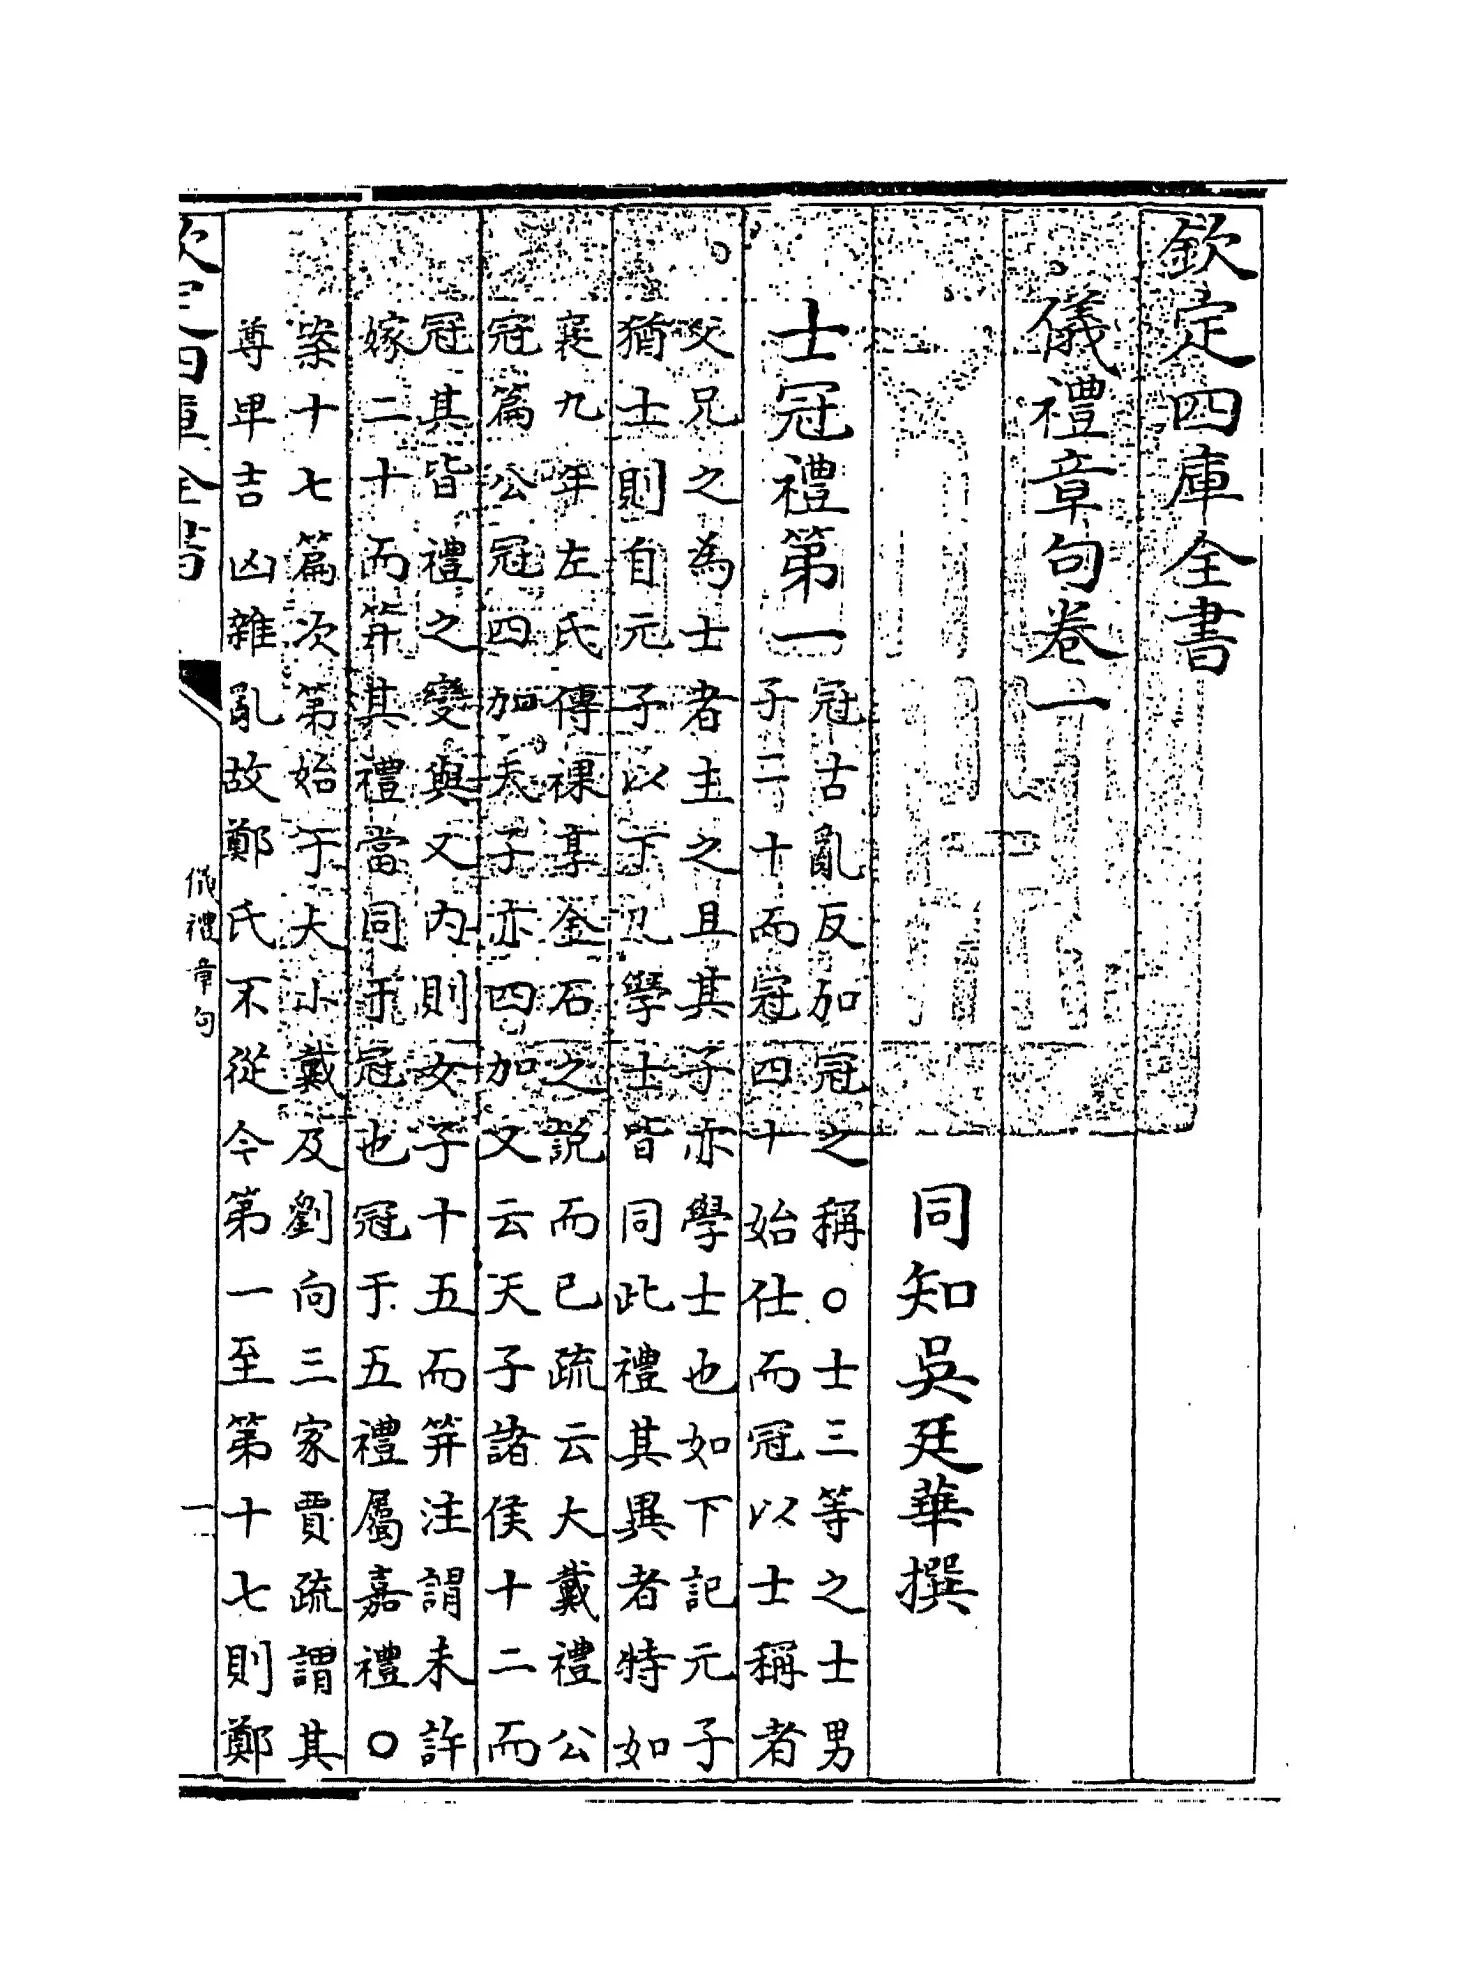 欽定四庫全書
儀禮章句卷一
同知吳廷華撰
士冠禮第一
冠古亂反加冠之稱○士三等之士男
子二十而冠四十始仕而冠以士稱者
父兄之為士者主之且其子亦學士也如下記元子
猶士則自元子以下凡學士皆同此禮其異者特如
襄九年左氏傳祼享金石之說而已疏云大戴禮公
冠篇公冠四加天子亦四加又云天子諸侯十二而
冠其皆禮之變與又内則女子十五而笄注謂未許
嫁二十而笄其禮當同于冠也冠于五禮屬嘉禮○
案十七篇次第始于大小戴及劉向三家賈疏謂其
尊卑吉凶雜亂故鄭氏不從今第一至第十七則鄭
欽定四庫全書
儀禮章句
一